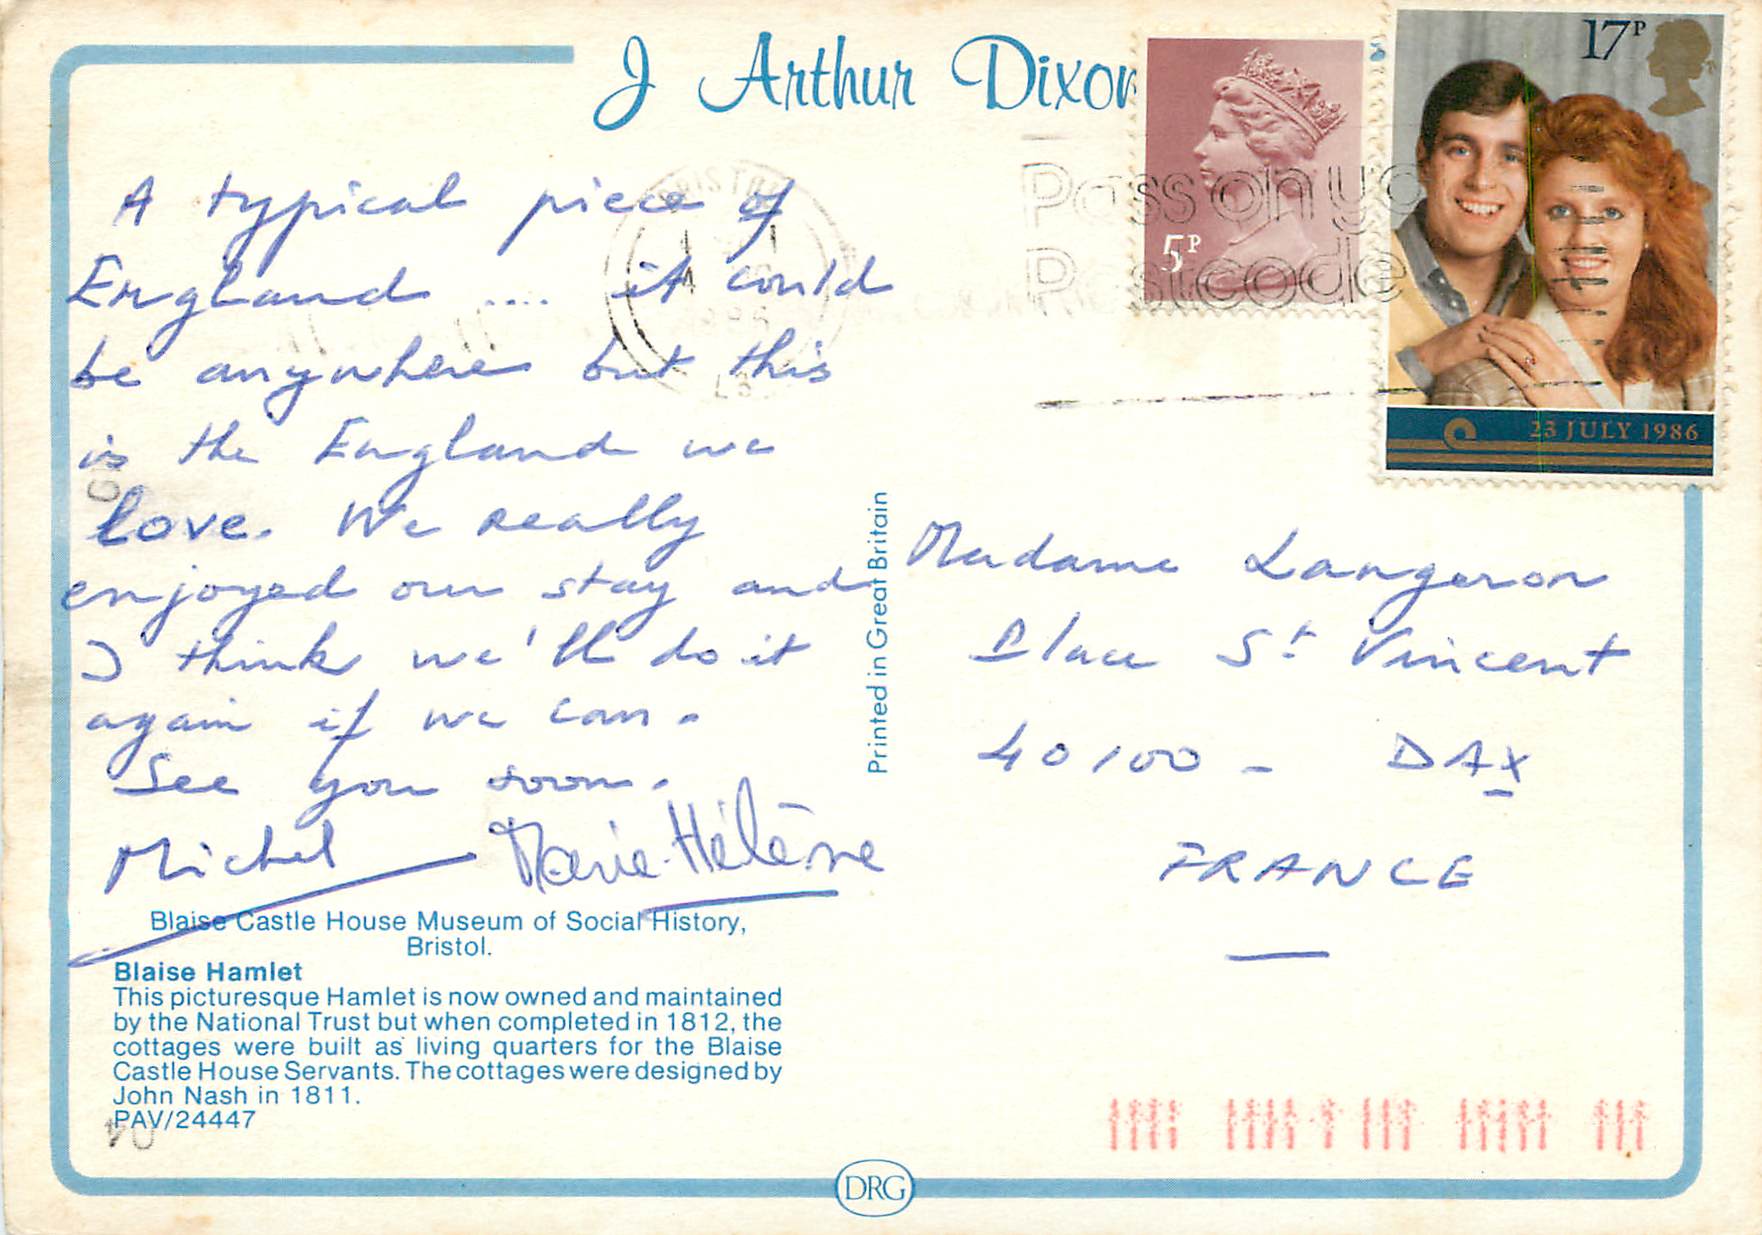 J Arthur Dixon
5P
17P
23 JULY 1986
Pass on yo
Postcode
A typical piece of
England .... it could
be anywhere but this
is the England we
love. We really
enjoyed our stay and
I think we'll do it
again if we can.
See you soon.
Michel Marie-Hélène
Blaise Castle House Museum of Social History,
Bristol.
Blaise Hamlet
This picturesque Hamlet is now owned and maintained
by the National Trust but when completed in 1812, the
cottages were built as living quarters for the Blaise
Castle House Servants. The cottages were designed by
John Nash in 1811.
PAV/24447
Printed in Great Britain
Madame Langeron
Place St Vincent
40100 - DAX
FRANCE
DRG